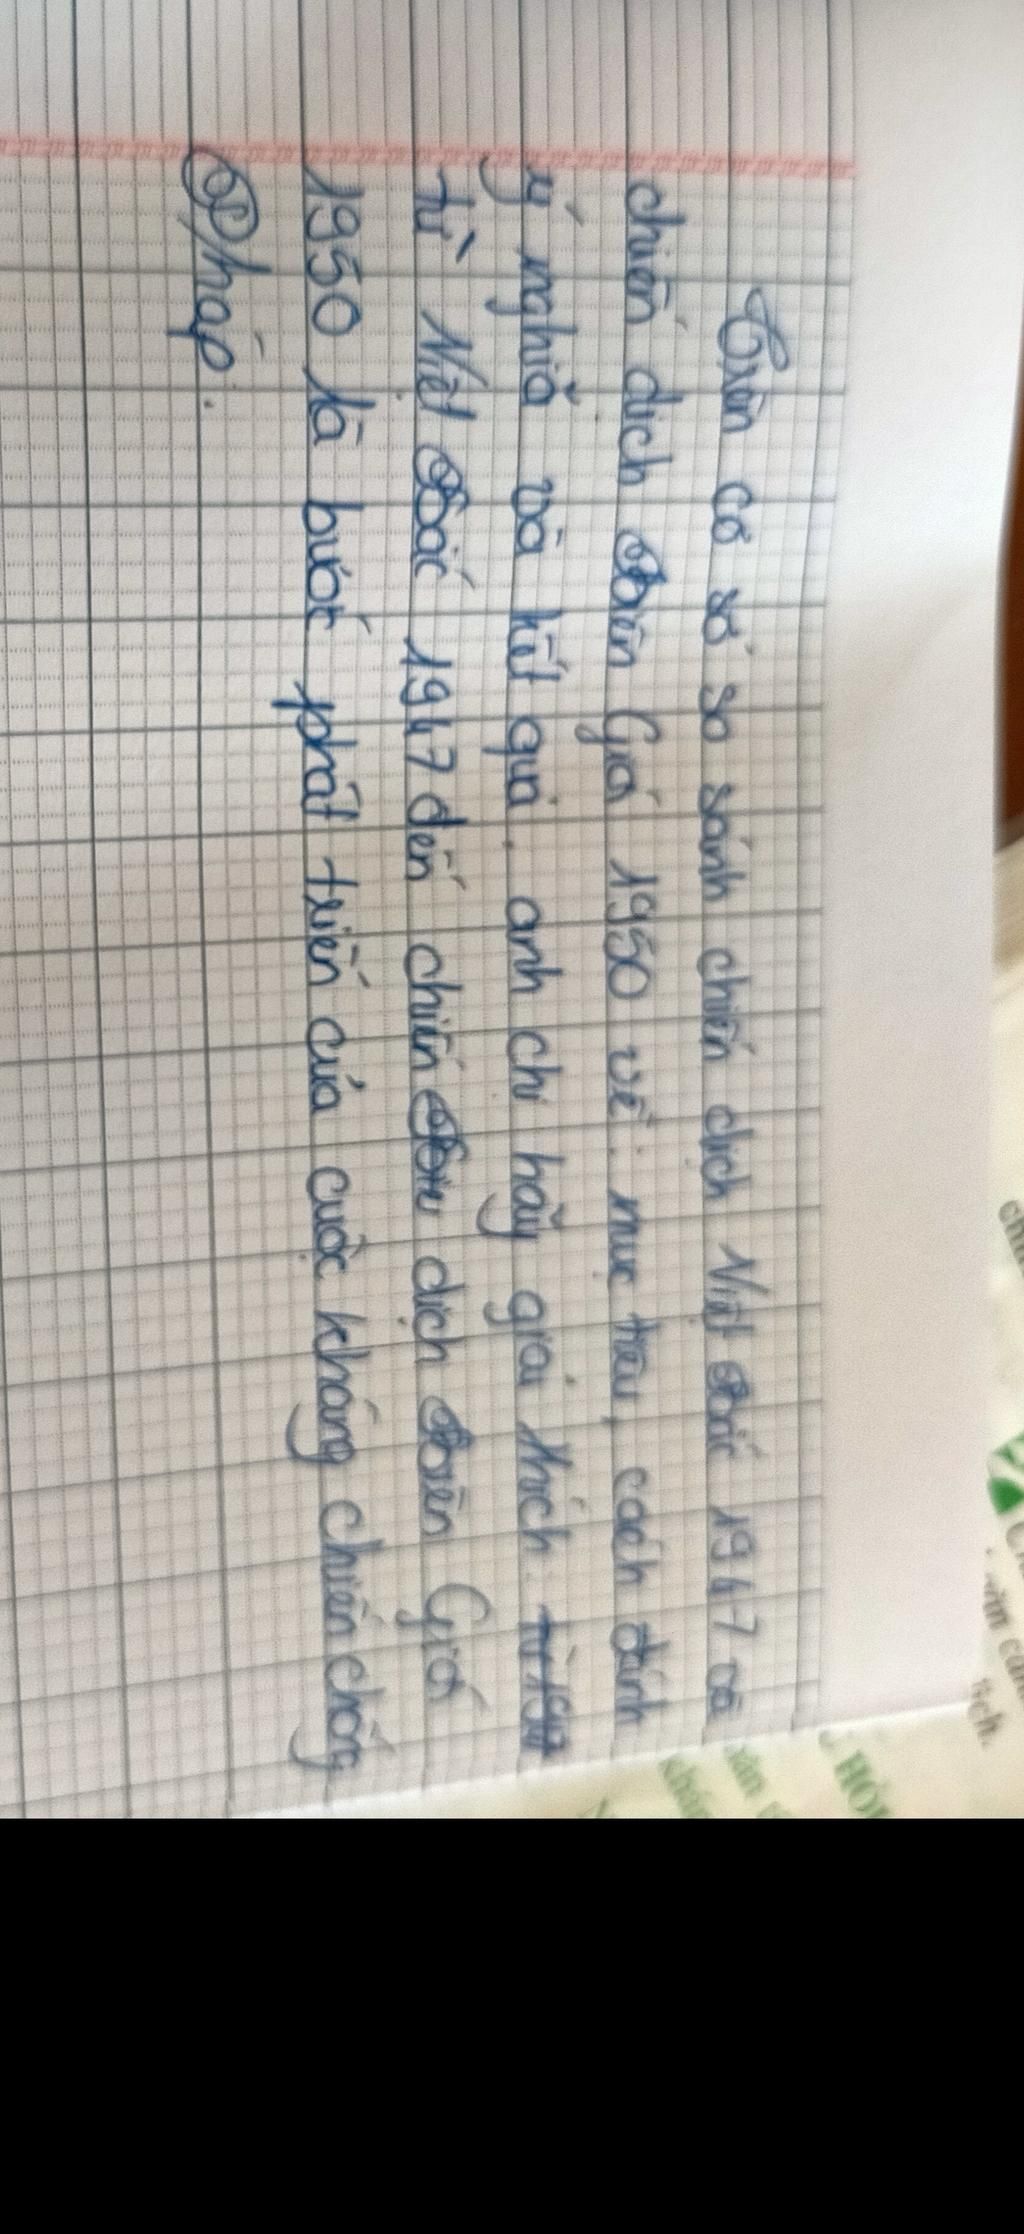 Trên cơ sở so sánh chiến dịch Việt Bắc 1947 và
chiến dịch Biên Giới 1950 về: mục tiêu, cách đánh
ý nghĩa và kết quả, anh chị hãy giải thích
từ Việt Bắc 1947 đến chiến dịch Biên Giới
1950 là bước phát triển của cuộc kháng chiến chống
Pháp.
HÓA
tích.